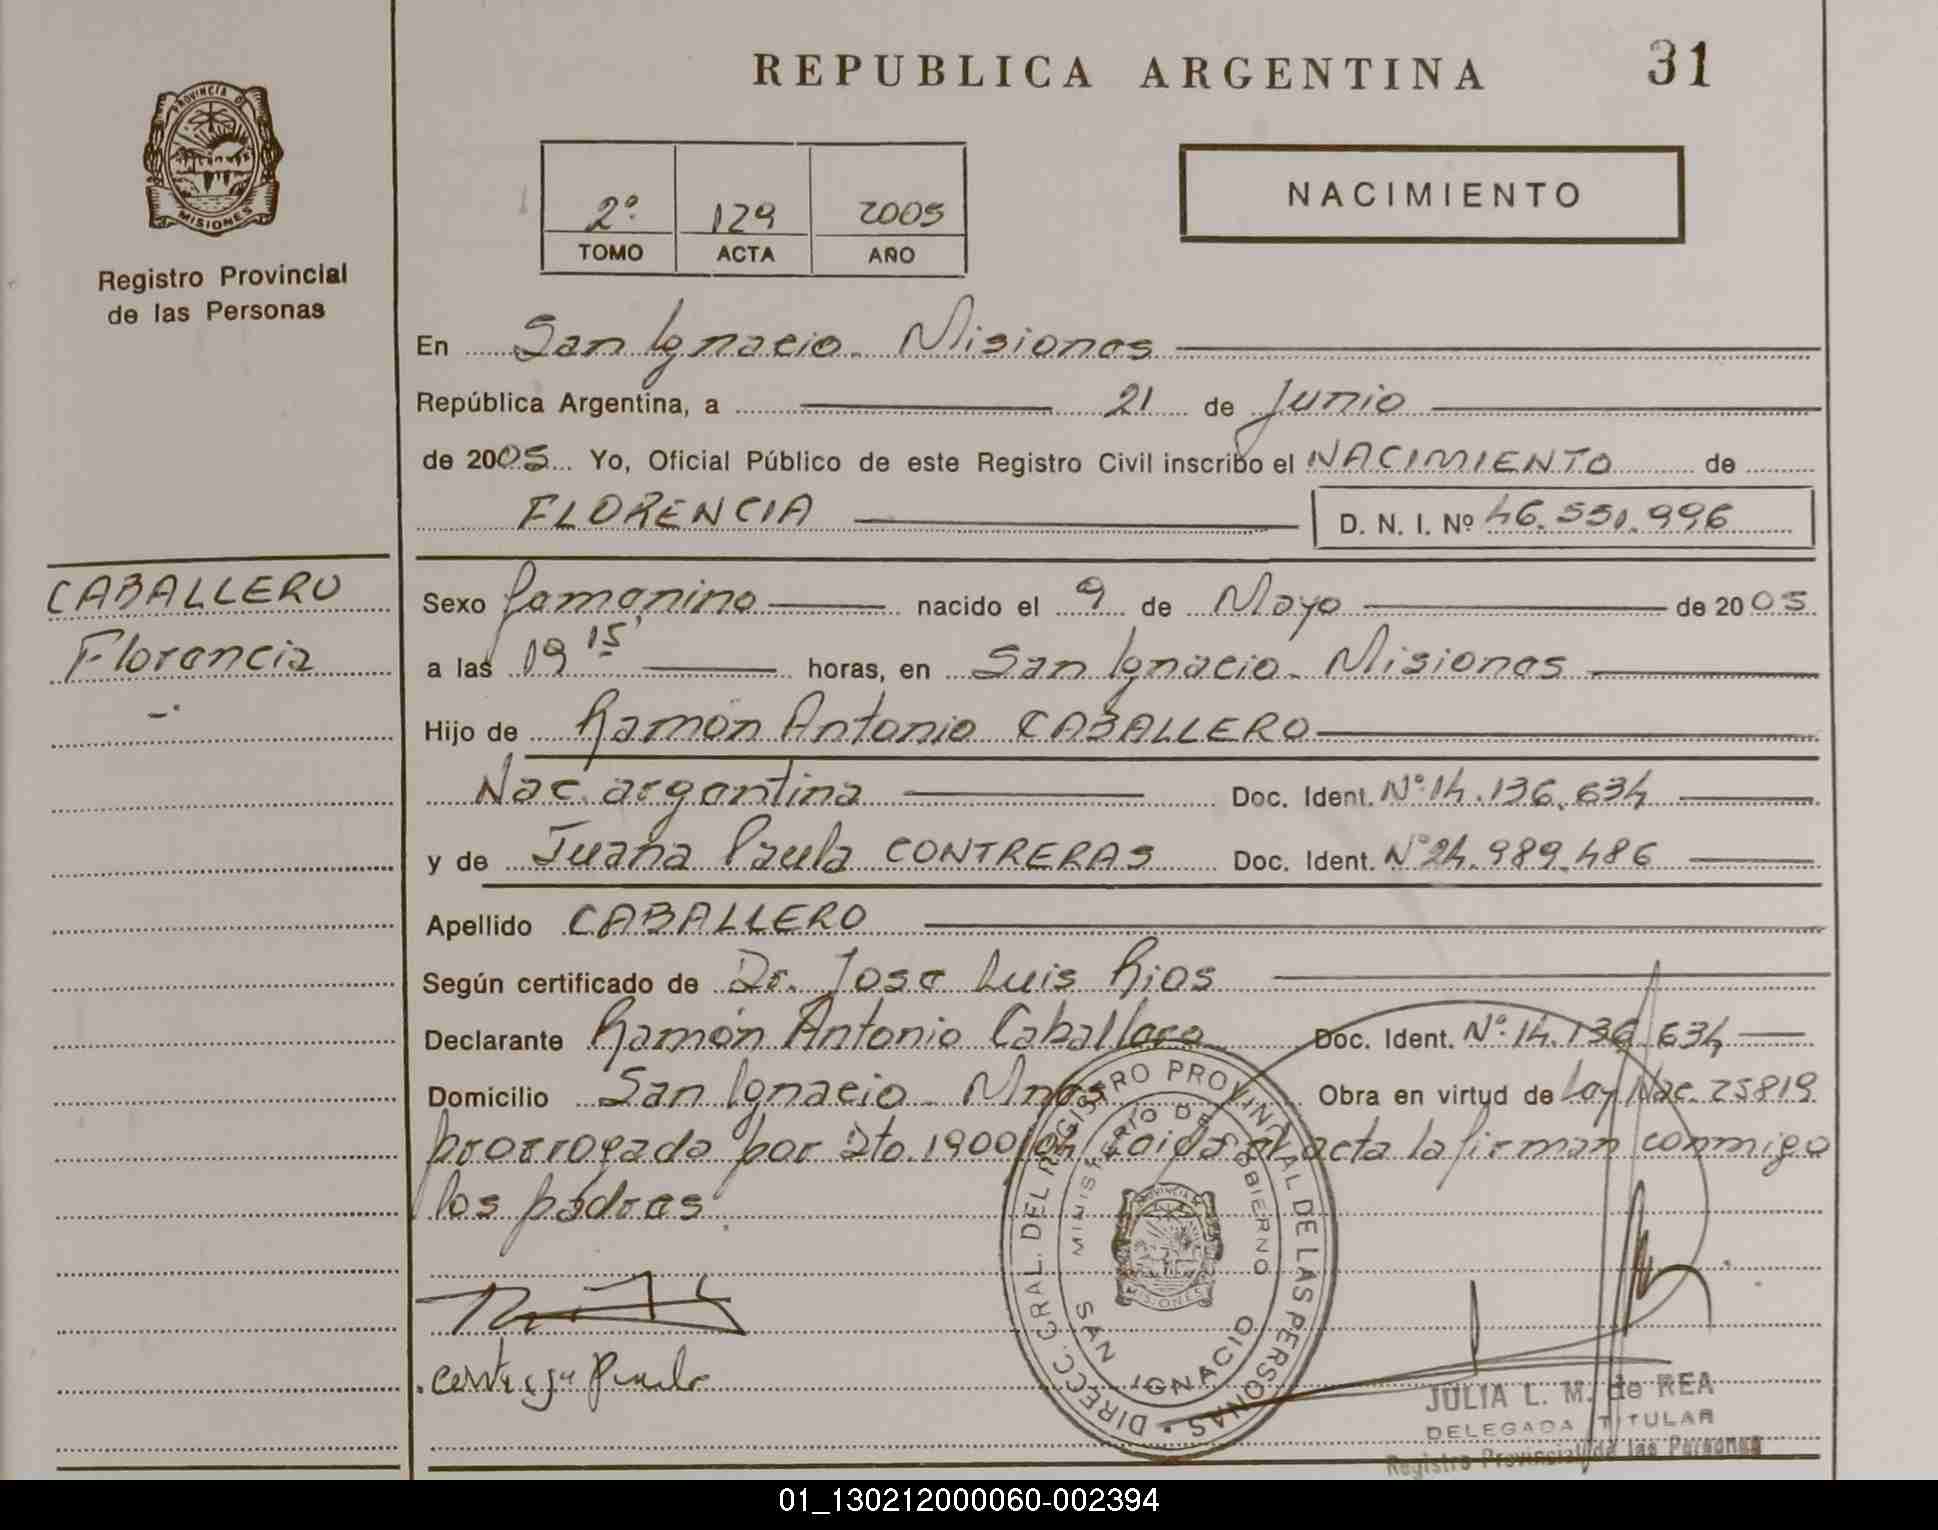 REPUBLICA ARGENTINA
31
PROVINCIA DE
MISIONES
Registro Provincial
de las Personas
2º 129 2005
TOMO ACTA AÑO
NACIMIENTO
En San Ignacio. Misiones
República Argentina, a 21 de Junio
de 2005 Yo, Oficial Público de este Registro Civil inscribo el NACIMIENTO de
FLORENCIA D. N. I. Nº 46.550.996
CABALLERO
Florencia
Sexo femenino nacido el 9 de Mayo de 2005
a las 19 15' horas, en San Ignacio. Misiones
Hijo de Ramón Antonio CABALLERO
Nac. argentina Doc. Ident. Nº 14.136.634
y de Juana Paula CONTRERAS Doc. Ident. Nº 24.989.486
Apellido CABALLERO
Según certificado de Dr. Jose Luis Rios
Declarante Ramón Antonio Caballero Doc. Ident. Nº 14.136.634
Domicilio San Ignacio - Mnes Obra en virtud de Ley Nac. 25819
prorrogada por Dto. 1900/04 Leida el acta la firman conmigo
los padres.
DIRECC. GRAL. DEL REGISTRO PROVINCIAL DE LAS PERSONAS
MINISTERIO DE GOBIERNO
PROVINCIA
MISIONES
SAN IGNACIO
Paula
JULIA L. M. de REA
DELEGADA TITULAR
Registro Provincial de las Personas
01_130212000060-002394